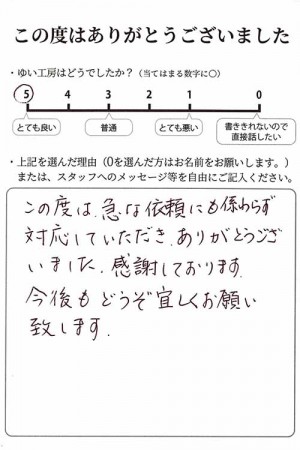 この度はありがとうございました
・ゆい工房はどうでしたか？（当てはまる数字に○）
5 4 3 2 1 0
とても良い 普通 とても悪い 書ききれないので
直接話したい
・上記を選んだ理由（0を選んだ方はお名前をお願いします。）
または、スタッフへのメッセージ等を自由にご記入ください。
この度は、急な依頼にも係わらず
対応していただき、ありがとうござ
いました。感謝しております。
今後もどうぞ宜しくお願い
致します。